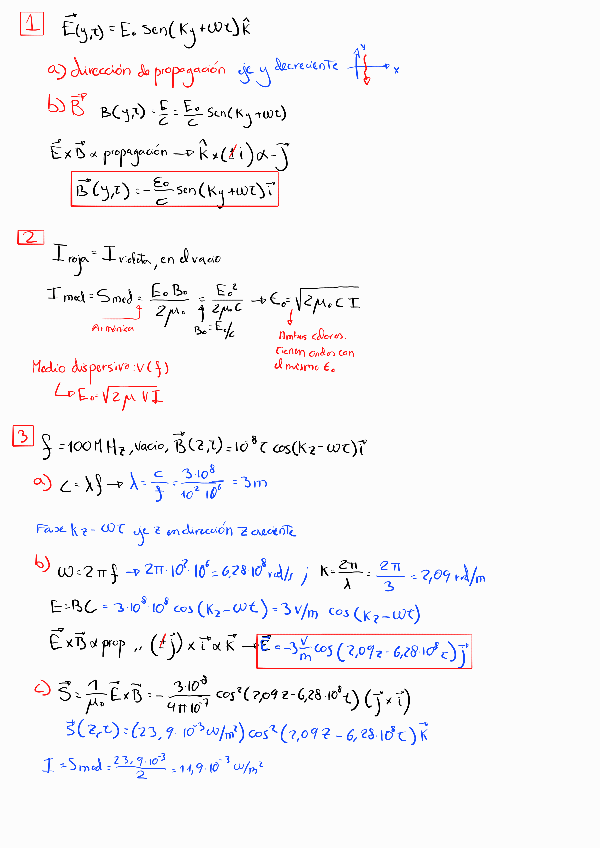 1 E⃗(y,t) = E₀ sen(Ky+ωt) k̂
a) dirección de propagación eje y decreciente
y
x
b) B⃗ B(y,t) = E/c = E₀/c sen(Ky+ωt)
E⃗ x B⃗ ∝ propagación → k̂ x (± i) ∝ -j⃗
B⃗(y,t) = - E₀/c sen(Ky+ωt) i⃗
2
I roja = I violeta, en el vacío
I med = S med = E₀ B₀ / 2μ₀ = E₀² / 2μ₀c → E₀ = √(2μ₀ c I)
Armónica
B₀ = E₀/c
Ambos colores
tienen ondas con
el mismo E₀
Medio dispersivo: v(f)
↳ E₀ = √(2μ v I)
3 f = 100 MHz, vacío, B⃗(z,t) = 10⁻⁸ T cos(Kz-ωt) i⃗
a) c = λf → λ = c/f = 3·10⁸ / 10² 10⁶ = 3m
Fase Kz - ωt eje z en dirección z creciente
b) ω = 2π f → 2π·10²·10⁶ = 6,28·10⁸ rad/s ; K = 2π/λ = 2π/3 = 2,09 rad/m
E = BC = 3·10⁸·10⁻⁸ cos(Kz-ωt) = 3 V/m cos(Kz-ωt)
E⃗ x B⃗ ∝ prop ,, (± j⃗) x i⃗ ∝ K⃗ → E⃗ = -3 V/m cos(2,09z - 6,28·10⁸ t) j⃗
c) S⃗ = 1/μ₀ E⃗ x B⃗ = - 3·10⁻⁸ / 4π10⁻⁷ cos²(2,09z - 6,28·10⁸ t) (j⃗ x i⃗)
S⃗(z,t) = (23,9·10⁻³ w/m²) cos²(2,09z - 6,28·10⁸ t) K⃗
I = S med = 23,9·10⁻³ / 2 = 11,9·10⁻³ w/m²